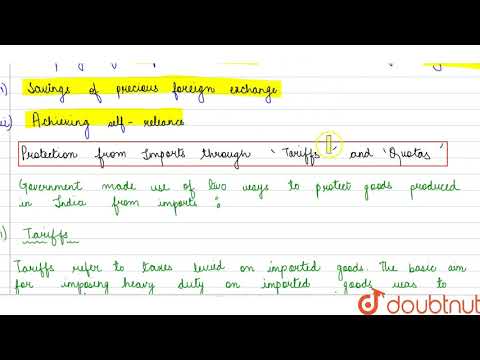 i) Savings of precious foreign exchange
ii) Achieving self-reliance
Protection from Imports through 'Tariffs' and 'Quotas'
Government made use of two ways to protect goods produced
in India from imports :
1) Tariffs
Tariffs refer to taxes levied on imported goods. The basic aim
for imposing heavy duty on imported goods was to
doubtnut